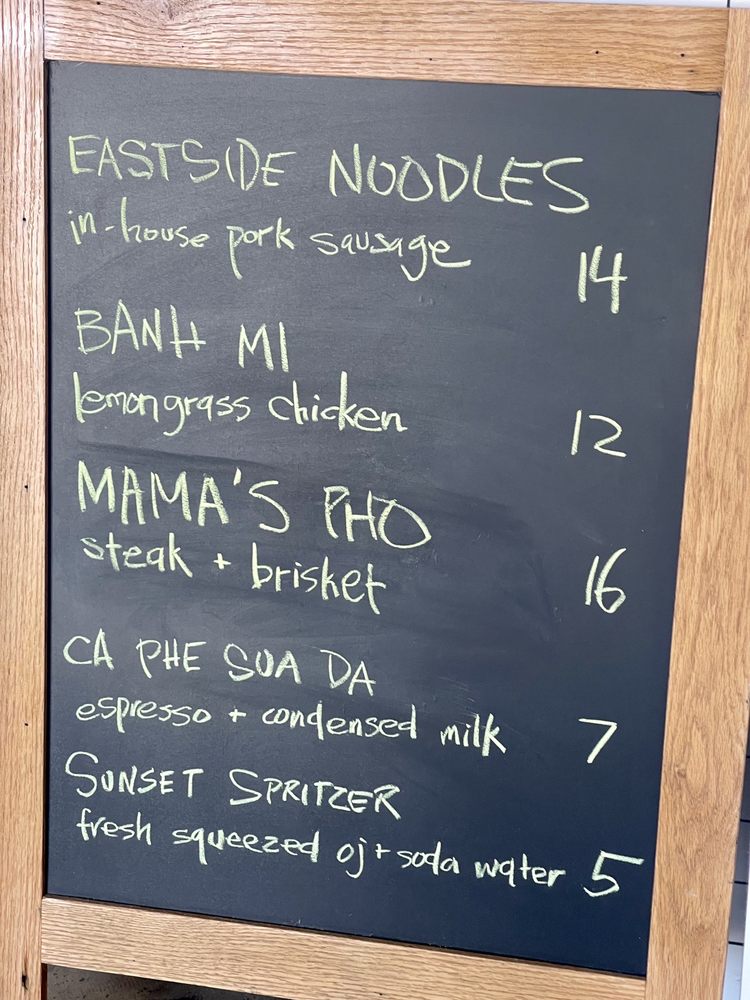 EASTSIDE NOODLES
in-house pork sausage 14
BANH MI
lemongrass chicken 12
MAMA'S PHO
steak + brisket 16
CA PHE SUA DA
espresso + condensed milk 7
SUNSET SPRITZER
fresh squeezed oj + soda water 5